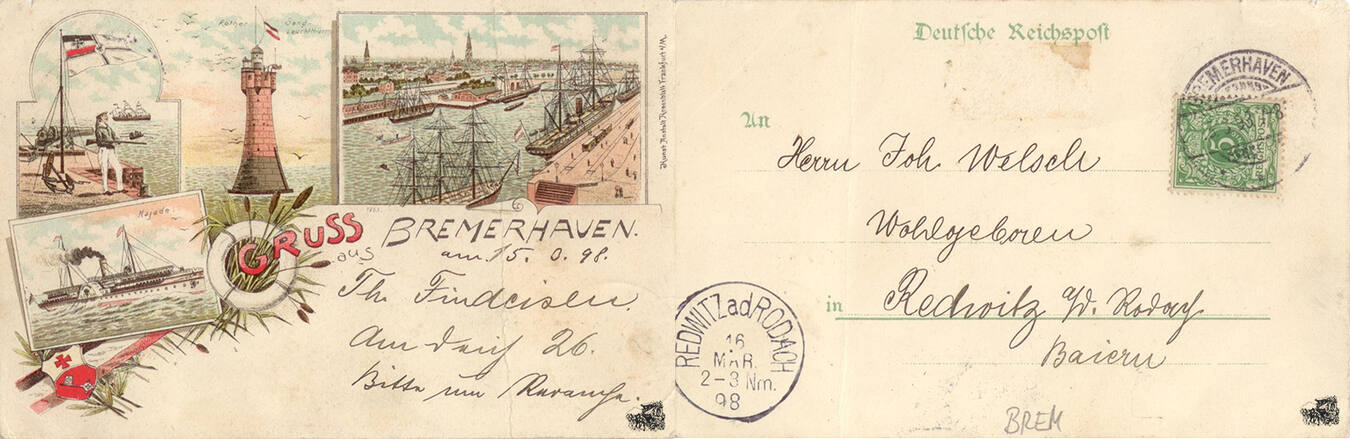 Rother Sand-
Leuchtthurm
Najade.
GRUSS
aus
BREMERHAVEN.
am 15. 3. 98.
Th. Findeisen.
Am Deich 26.
Bitte um Revanche.
Kunst-Anstalt Rosenblatt Frankfurt a/M.
Deutsche Reichspost
BREMERHAVEN
5
An
Herrn Joh. Welsch
Wohlgeboren
in Redwitz a/d. Rodach
Baiern
REDWITZ ad RODACH
16
MAR.
2-3 Nm.
98
BREM